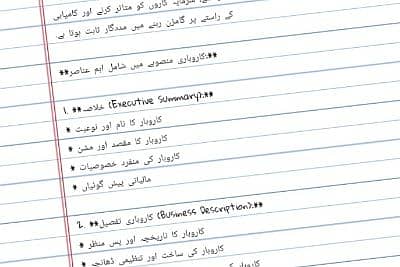 سرمایہ کاروں کو متاثر کرنے اور کامیابی
کے راستے پر گامزن رہنے میں مددگار ثابت ہوتا ہے۔
**کاروباری منصوبے میں شامل اہم عناصر:**
1. **خلاصہ (Executive Summary):**
* کاروبار کا نام اور نوعیت
* کاروبار کا مقصد اور مشن
* کاروبار کی منفرد خصوصیات
* مالیاتی پیش گوئیاں
2. **کاروباری تفصیل (Business Description):**
* کاروبار کا تاریخچہ اور پس منظر
* کاروبار کی ساخت اور تنظیمی ڈھانچہ